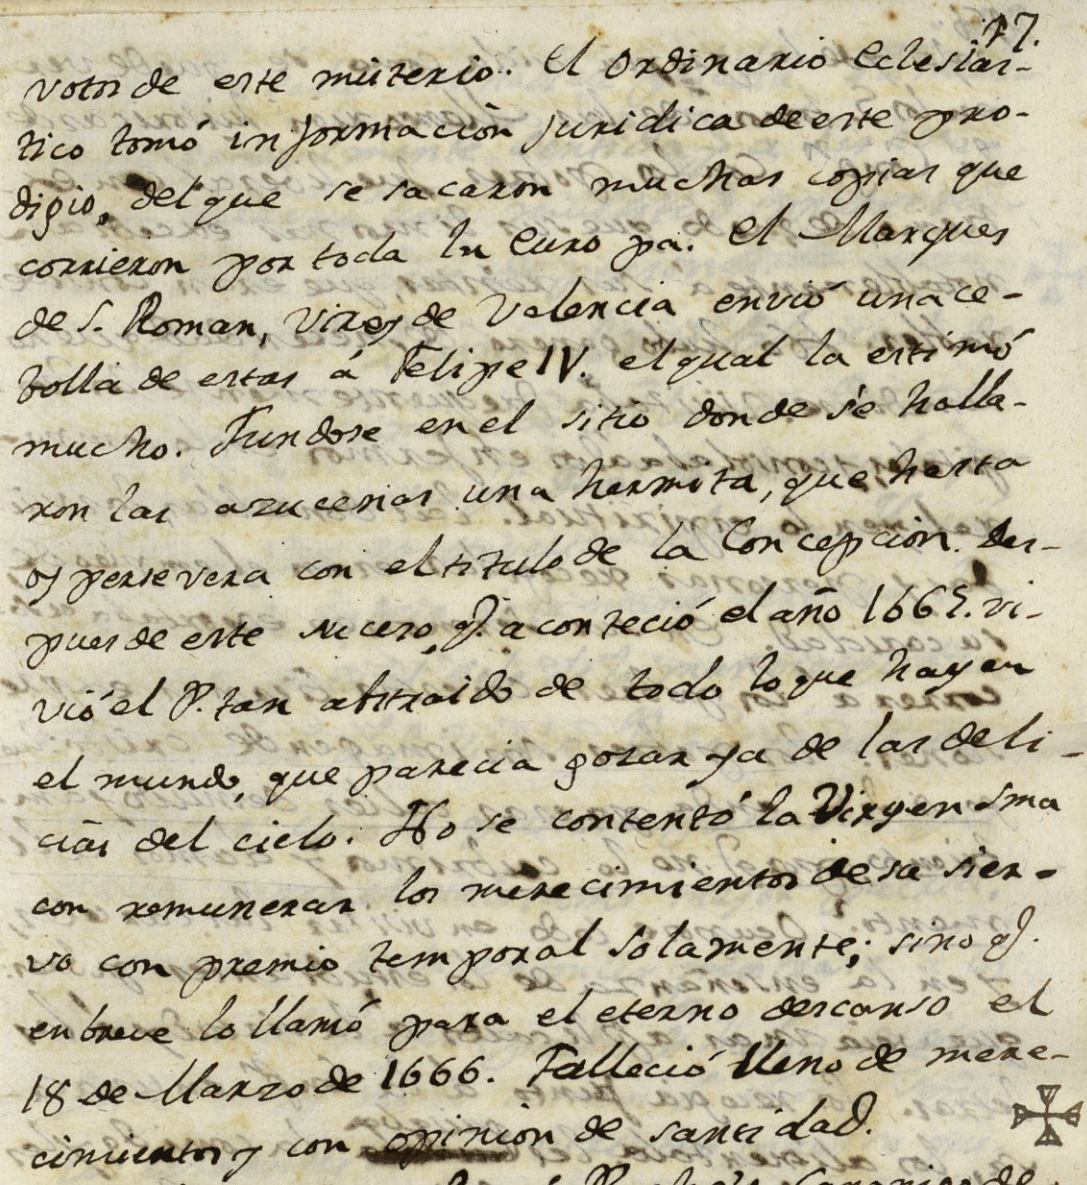 17.
votos de este misterio. El Ordinario Eclesias-
tico tomó informaciòn juridica de este pro-
digio, del que se sacaron muchas copias que
corrieron por toda la Europa. El Marques
de S. Roman, Virey de Valencia envió una ce-
bolla de estas á Felipe IV. el qual la estimó
mucho. Fundose en el sitio donde se halla-
ron las azucenas una hermita, que hasta
oy persevera con el titulo de la Concepcion. Des-
pues de este suceso, q.e aconteció el año 1665. vi-
vió el P. tan abstraido de todo lo que hay en
el mundo, que parecia gozar ya de las deli-
cias del cielo. No se contentó la Virgen Sma
con remunerar los merecimientos de su sier-
vo con premio temporal solamente; sino q.e
en breve lo llamó para el eterno descanso el
18 de Marzo de 1666. Falleció lleno de mere-
cimientos y con opinion de santidad.